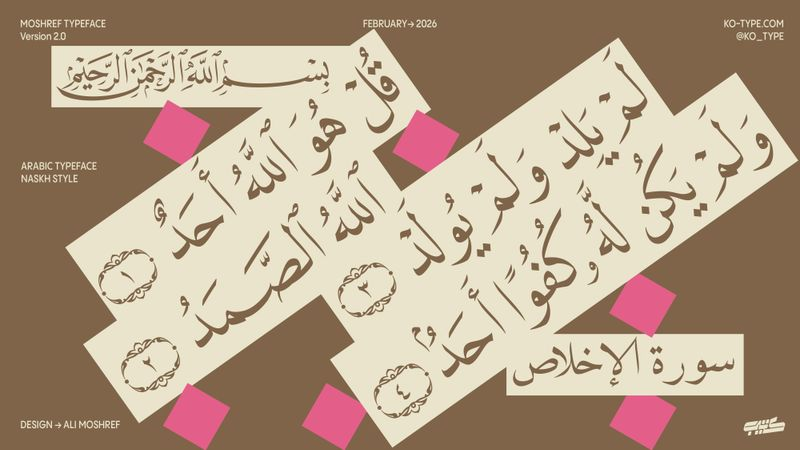 MOSHREF TYPEFACE
Version 2.0
FEBRUARY→ 2026
KO-TYPE.COM
@KO_TYPE
بِسْمِ ٱللَّهِ ٱلرَّحْمَٰنِ ٱلرَّحِيمِ
قُلْ هُوَ ٱللَّهُ أَحَدٌ ١
ٱللَّهُ ٱلصَّمَدُ ٢
لَمْ يَلِدْ وَلَمْ يُولَدْ ٣
وَلَمْ يَكُن لَّهُۥ كُفُوًا أَحَدٌۢ ٤
سورة الإخلاص
ARABIC TYPEFACE
NASKH STYLE
DESIGN → ALI MOSHREF